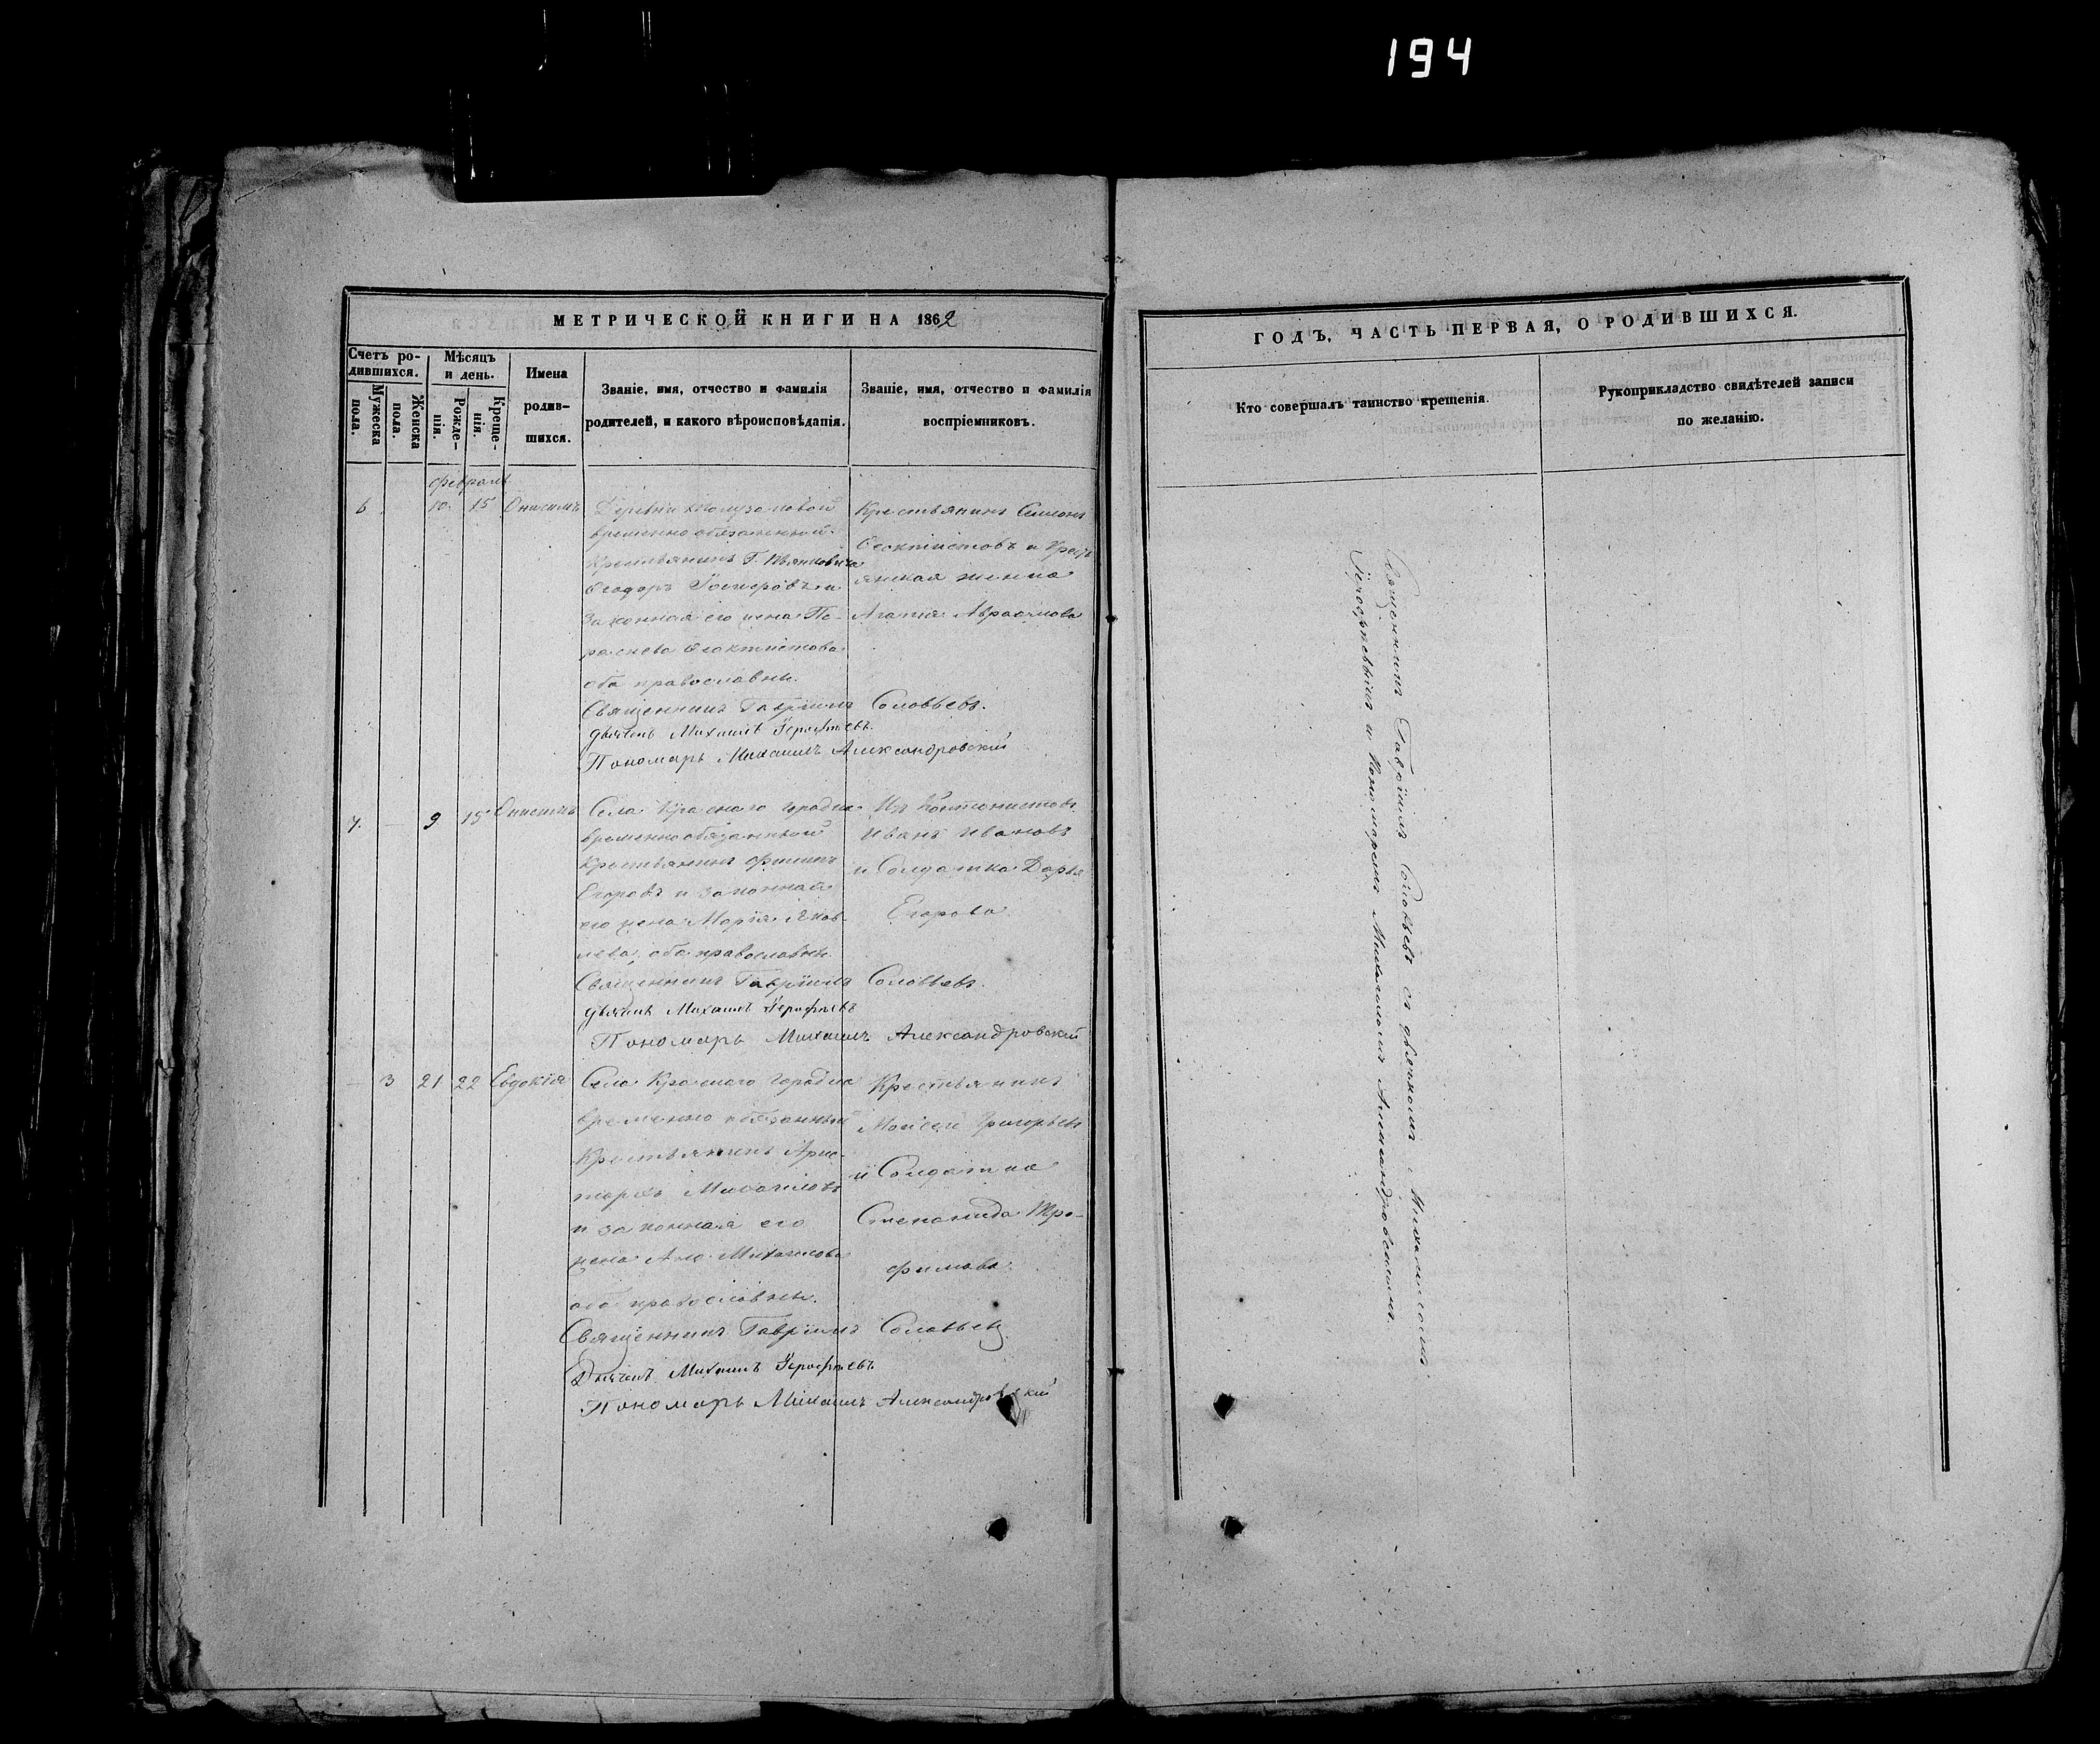 194
МЕТРИЧЕСКОЙ КНИГИ НА 1862
Счетъ родившихся.
Мужеска пола.
Женска пола.
Мѣсяцъ и день.
Рожденія.
Крещенія.
Имена родившихся.
Званіе, имя, отчество и фамилія
родителей, и какого вѣроисповѣданія.
Званіе, имя, отчество и фамилія
воспріемниковъ.
февраль
6 10. 15 Онисимъ
Деревни
временно обязанный
Крестьянинъ Г.
Ѳеодоръ и
Законная его жена Па-
раскева Ѳеоктистова
оба православны.
Крестьянинъ
Ѳеоктистовъ и Крест
янская женка
Агапія Авраамова
Священникъ Гавріилъ Соловьевъ.
Дьячекъ Михаилъ Іерофѣевъ.
Пономарь Михаилъ Александровскій
7. — 9 15 Онисимъ
Села Краснаго
временнообязанный
Крестьянинъ Филипъ
Егоровъ и законная
его жена Марія Яков-
лева, оба православны
Изъ Кантонистовъ
Иванъ Ивановъ
и Солдатка Дарья
Егорова
Священникъ Гавріилъ Соловьевъ.
Дьячекъ Михаилъ Іерофѣевъ
Пономарь Михаилъ Александровскій
— 3 21 22 Евдокія
Села Краснаго
временно обязанный
Крестьянинъ Арис-
тархъ Михайловъ
и законная его
жена Михайлова
оба православны.
Крестьянинъ
Моисей Григорьевъ
и Солдатка
Степанида Тро-
фимова.
Священникъ Гавріилъ Соловьевъ
Дьячекъ Михаилъ Іерофѣевъ
Пономарь Михаилъ Александровскій
ГОДЪ, ЧАСТЬ ПЕРВАЯ, О РОДИВШИХСЯ.
Кто совершалъ таинство крещенія.
Рукоприкладство свидѣтелей записи
по желанію.
Священникъ Гавріилъ Соловьевъ съ дьячкомъ Михаиломъ
Іерофѣевымъ и Пономаремъ Михаиломъ Александровскимъ.